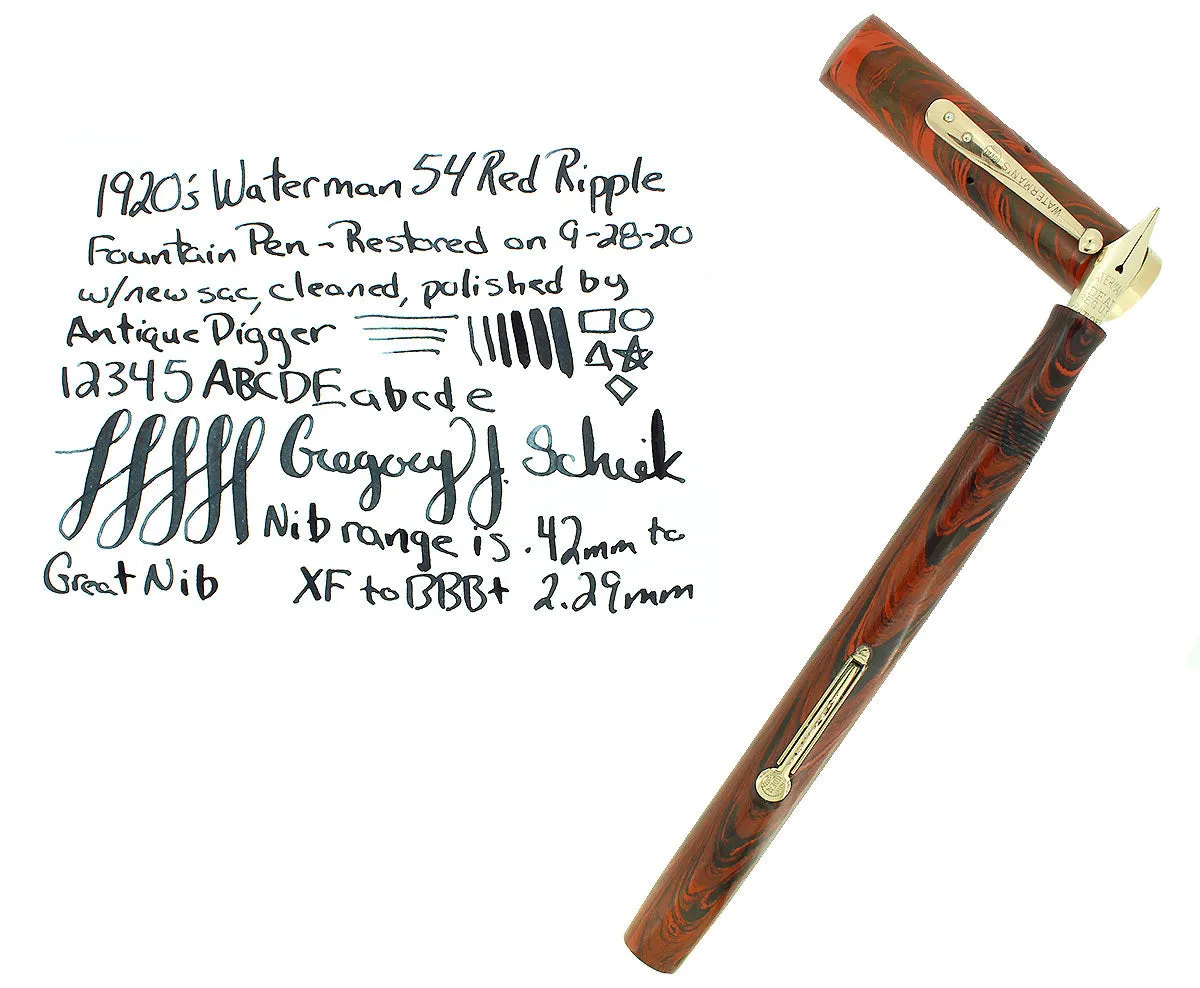 1920's Waterman 54 Red Ripple
Fountain Pen - Restored on 9-28-20
w/new sac, cleaned, polished by
Antique Digger
12345 ABCDE abcde
Gregory J.
Nib range is .42mm to
Great Nib XF to BBB+ 2.29mm
WATERMAN'S